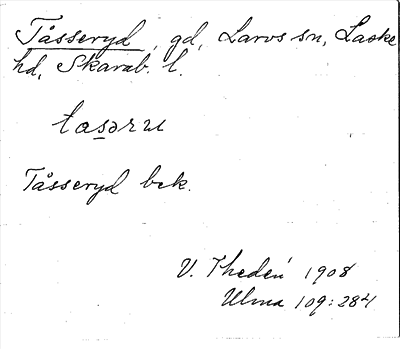 Tåsseryd, gd, Larvs sn, Laske
hd, Skarab. l.
tasəru
Tåsseryd bek.
V. Thedén 1908
Ulma 109:284